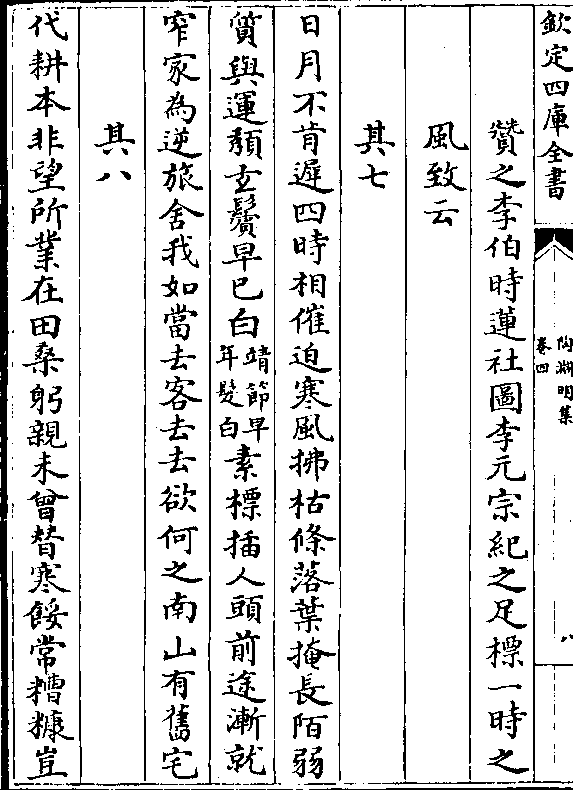 欽定四庫全書
陶淵明集
卷四
八
贊之李伯時蓮社圖李元宗紀之足標一時之
風致云
其七
日月不肯遲四時相催迫寒風拂枯條落葉掩長陌弱
質與運頹玄鬢早已白靖節早年髮白素標插人頭前途漸就
窄家為逆旅舍我如當去客去去欲何之南山有舊宅
其八
代耕本非望所業在田桑躬親未曾替寒餒常糟糠豈